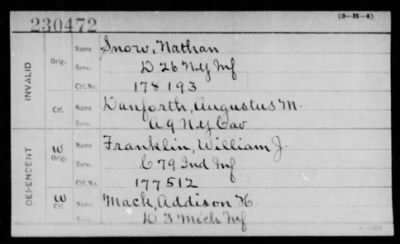 230472
(3-H-4)
INVALID
Orig.
Name Snow, Nathan
Serv. D 26 N.Y. Inf
Ctf. No. 178193
Ctf.
Name Danforth, Augustus M.
Serv. A 9 N.Y. Cav
DEPENDENT
W
Orig.
Name Franklin, William J.
Serv. C 79 Ind Inf
Ctf. No. 177512
W
Ctf.
Name Mack, Addison H
Serv. D 3 Mich Inf